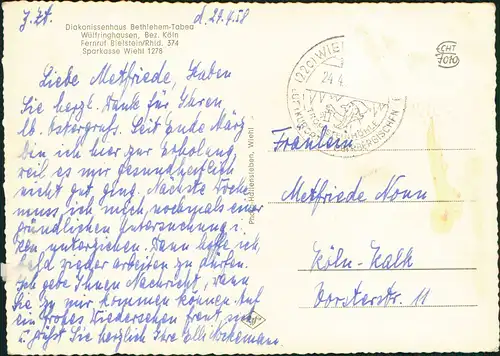 z. Zt.
d. 29.4.58
Diakonissenhaus Bethlehem-Tabea
Wülfringhausen, Bez. Köln
Fernruf Bielstein/Rhld. 374
Sparkasse Wiehl 1278
Liebe Metfriede, Haben
Sie herzl. Dank für Ihren
lb. Ostergruß. Seit Ende März
bin ich hier zur Erholung,
weil es mir gesundheitlich
nicht gut ging. Nächste Woche
muss ich mich nochmals einer
gründlichen Untersuchung
unterziehen. Dann hoffe ich,
bald wieder arbeiten zu dürfen.
Ich gebe Ihnen Nachricht, wann
Sie zu mir kommen können. Auf
ein frohes Wiedersehen freut sich
u. grüßt Sie herzlich Ihre Elli
Wiehl
(22c) WIEHL
24.4
LUFTKURORT
BERGISCHEN
ECHT
Fräulein
Metfriede Nonn
Köln-Kalk
Vorsterstr. 11